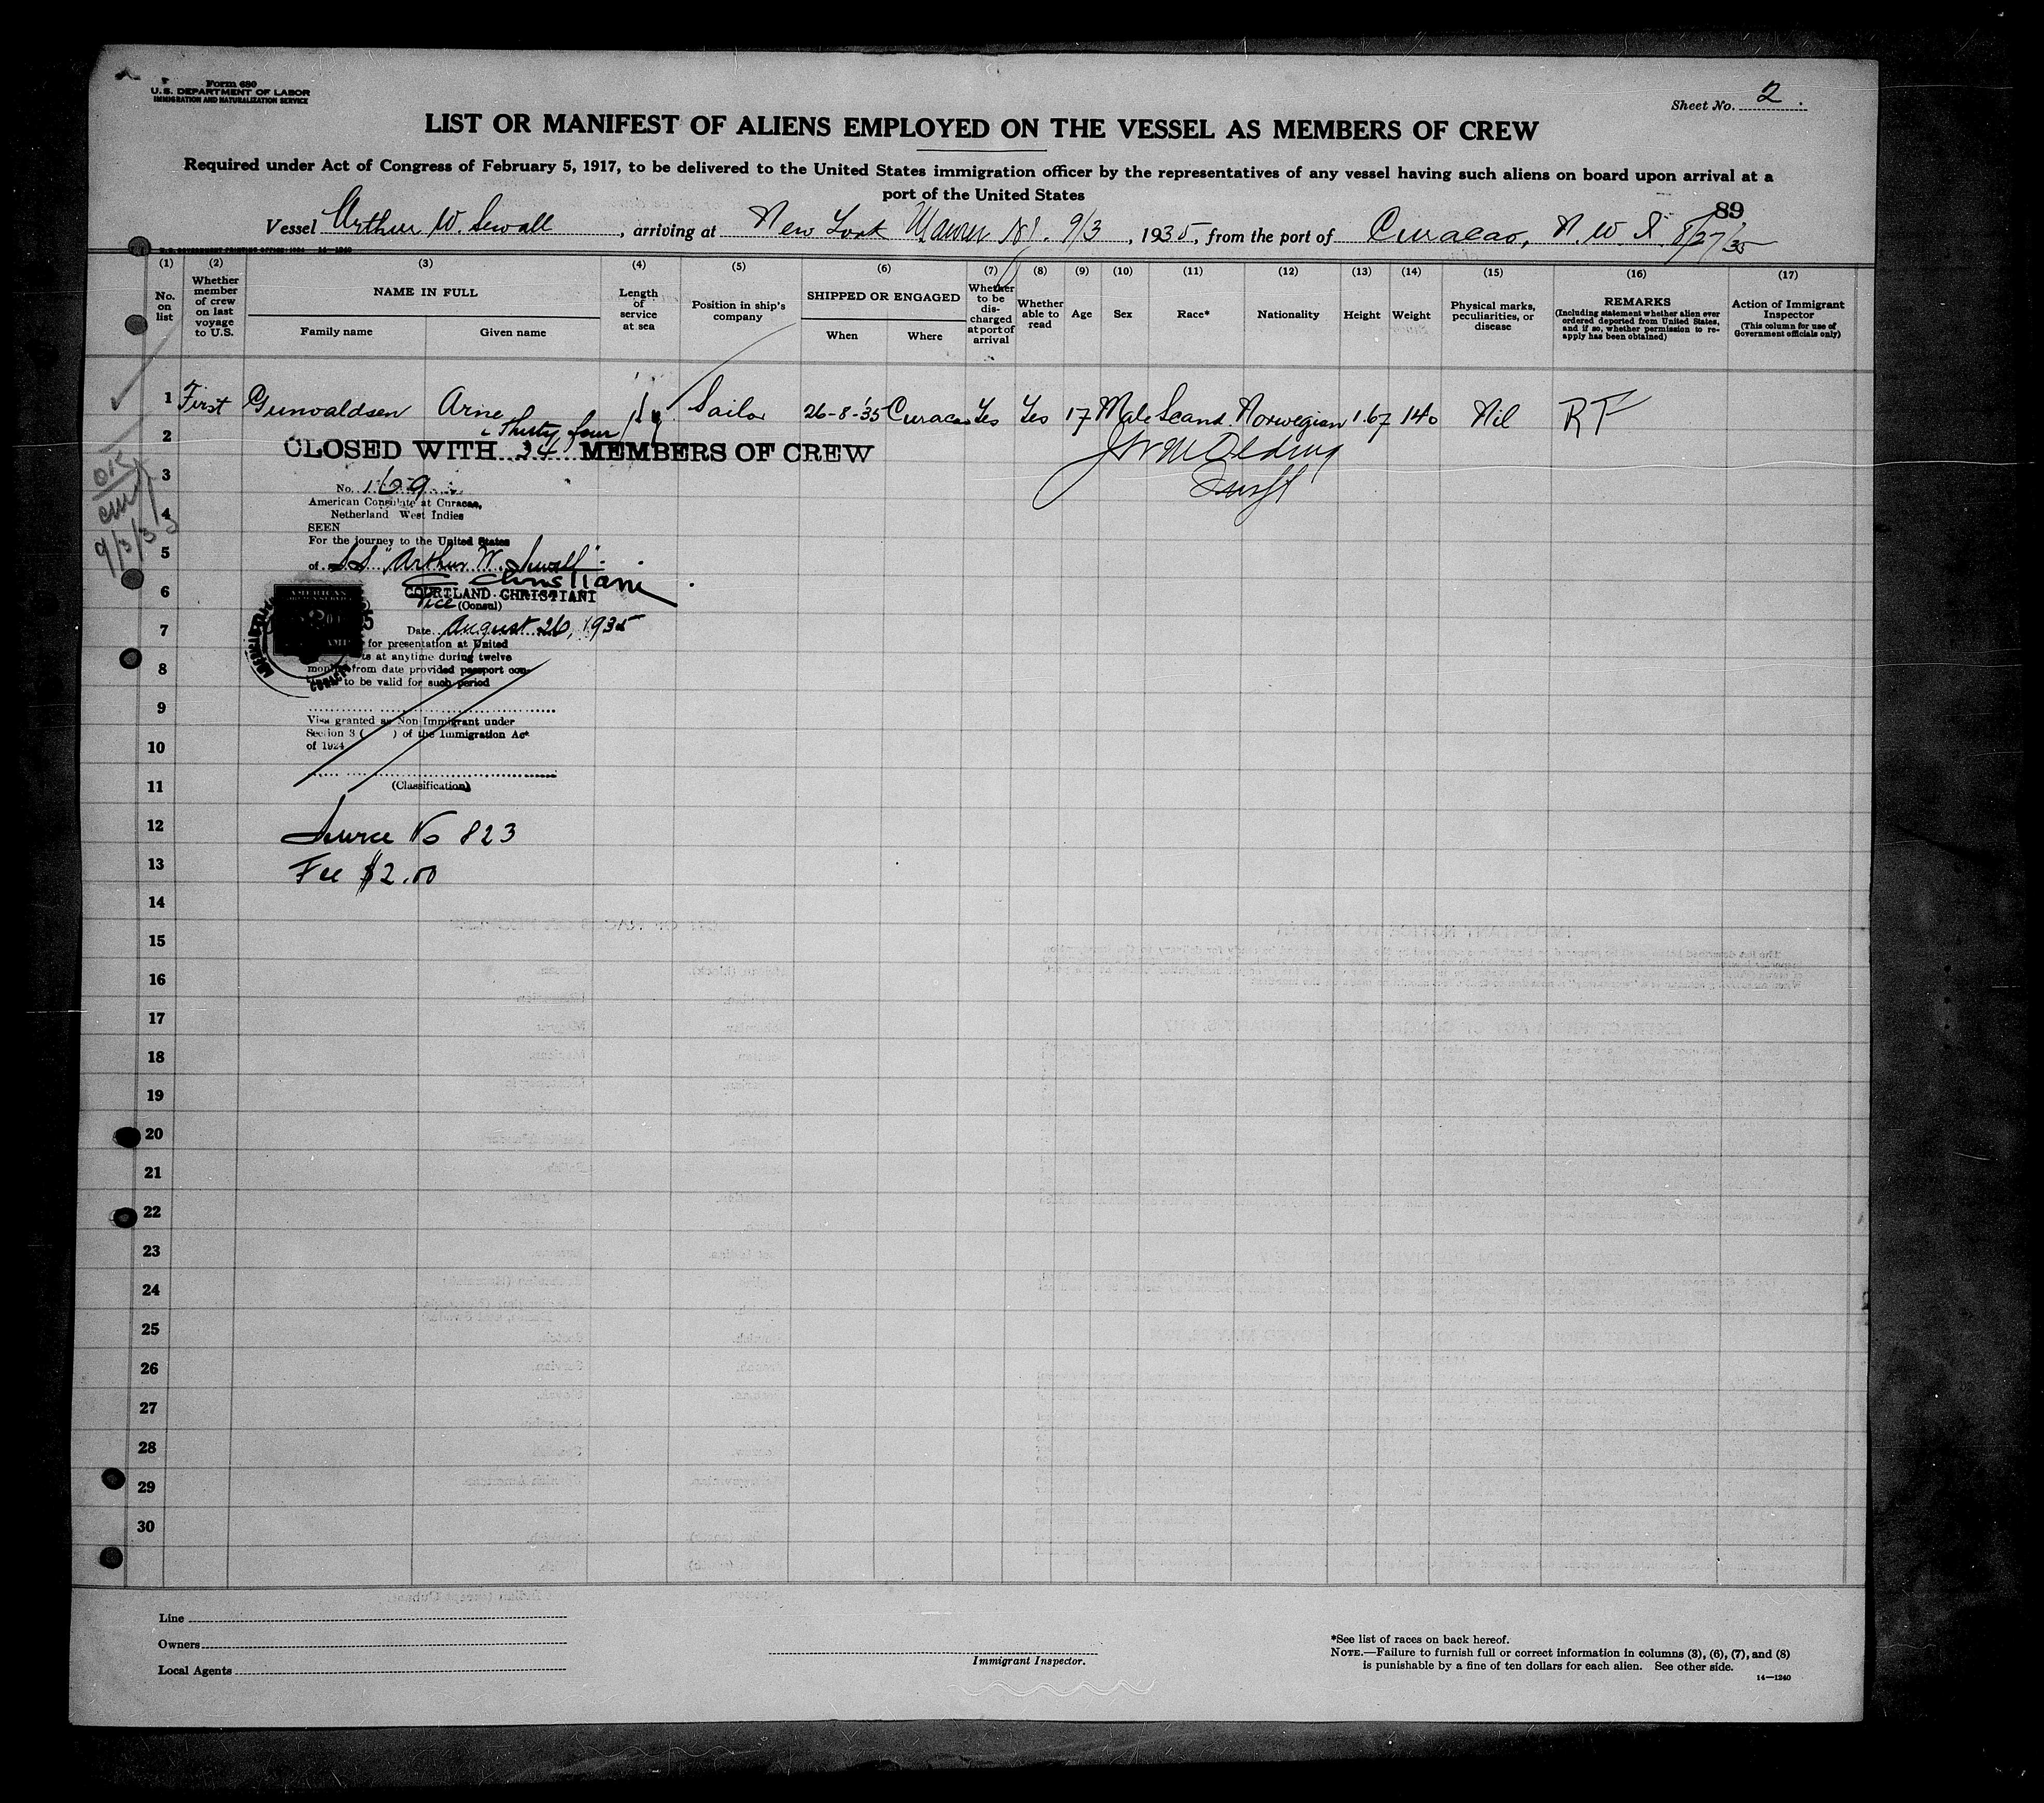 Form 680
U. S. DEPARTMENT OF LABOR
IMMIGRATION AND NATURALIZATION SERVICE
Sheet No. 2.
LIST OR MANIFEST OF ALIENS EMPLOYED ON THE VESSEL AS MEMBERS OF CREW
Required under Act of Congress of February 5, 1917, to be delivered to the United States immigration officer by the representatives of any vessel having such aliens on board upon arrival at a
port of the United States
89
Vessel Arthur W. Sewall, arriving at New York 9/3, 1935, from the port of Curacao, N.W.I. 8/27/35
U. S. GOVERNMENT PRINTING OFFICE: 1934 14—1240
(1) (2) (3) (4) (5) (6) (7) (8) (9) (10) (11) (12) (13) (14) (15) (16) (17)
No. on list
Whether member of crew on last voyage to U.S.
NAME IN FULL
Family name
Given name
Length of service at sea
Position in ship's company
SHIPPED OR ENGAGED
When
Where
Whether to be discharged at port of arrival
Whether able to read
Age
Sex
Race*
Nationality
Height
Weight
Physical marks, peculiarities, or disease
REMARKS
(Including statement whether alien ever ordered deported from United States, and if so, whether permission to reapply has been obtained)
Action of Immigrant Inspector
(This column for use of Government officials only)
1 First Gunvaldsen Arne Sailor 26-8-'35 Curacao Yes Yes 17 Male Scand. Norwegian 1.67 140 Nil RF
Thirty four
2
CLOSED WITH 34 MEMBERS OF CREW
OK
9/3/35
3
No. 169
American Consulate at Curacao,
4
Netherland West Indies
SEEN
For the journey to the United States
5
of SS "Arthur W. Sewall"
C Christiani
6
COURTLAND CHRISTIANI
Vice (Consul)
7
Date August 26, 1935
for presentation at United
at anytime during twelve
8
months from date provided passport con-
to be valid for such period
9
Visa granted as Non Immigrant under
Section 3 ( ) of the Immigration Act
10
of 1924
11
(Classification)
12
Service No 823
13
Fee $2.00
14
15
16
17
18
19
20
21
22
23
24
25
26
27
28
29
30
Line
Owners
Local Agents
Immigrant Inspector.
*See list of races on back hereof.
NOTE.—Failure to furnish full or correct information in columns (3), (6), (7), and (8)
is punishable by a fine of ten dollars for each alien. See other side.
14—1240